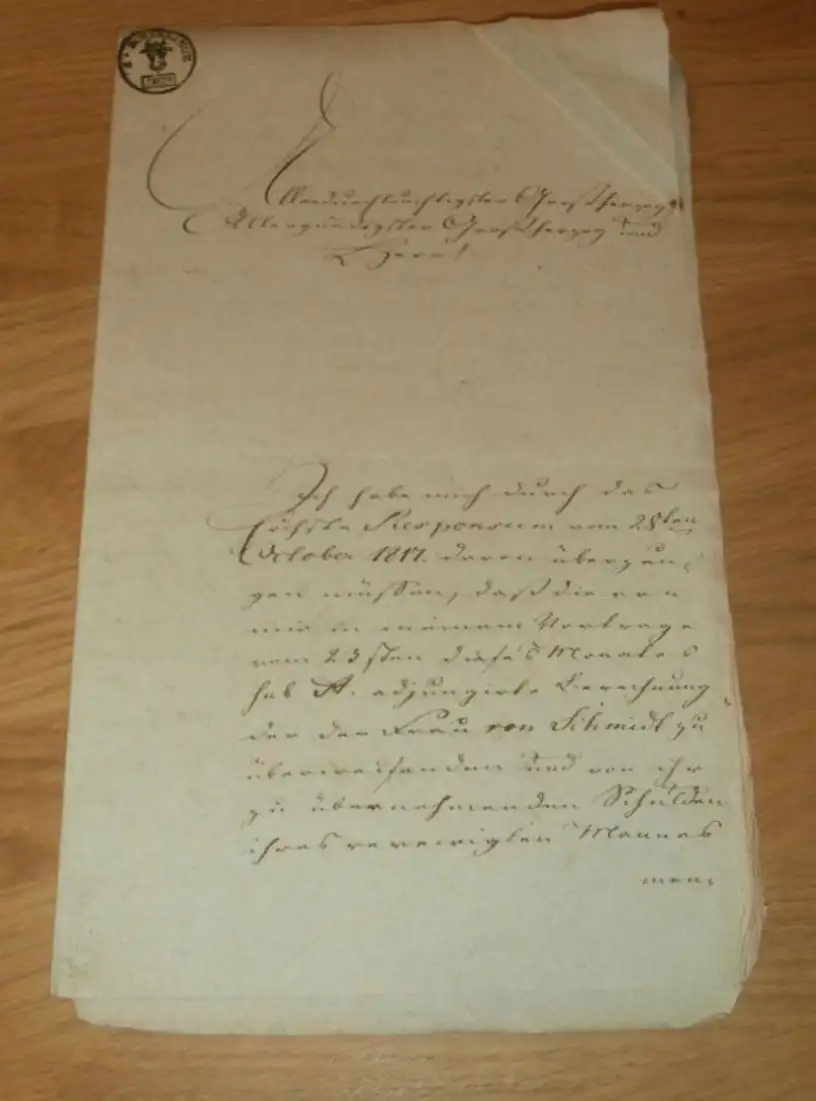 Allerdurchlauchtigster Großherzog!
Allergnädigster Großherzog und
Herr!
Ich habe mich durch das
höchste Responsum vom 28sten
October 1817. davon überzeu-
gen müssen, daß die von
mir in meinem Vortrage
vom 23sten dieses Monates
sub A. adjungirte Berechnung
der der Frau von Schmidt zu
überweisenden und von ihr
zu übernehmenden Schulden
ihres verewigten Mannes